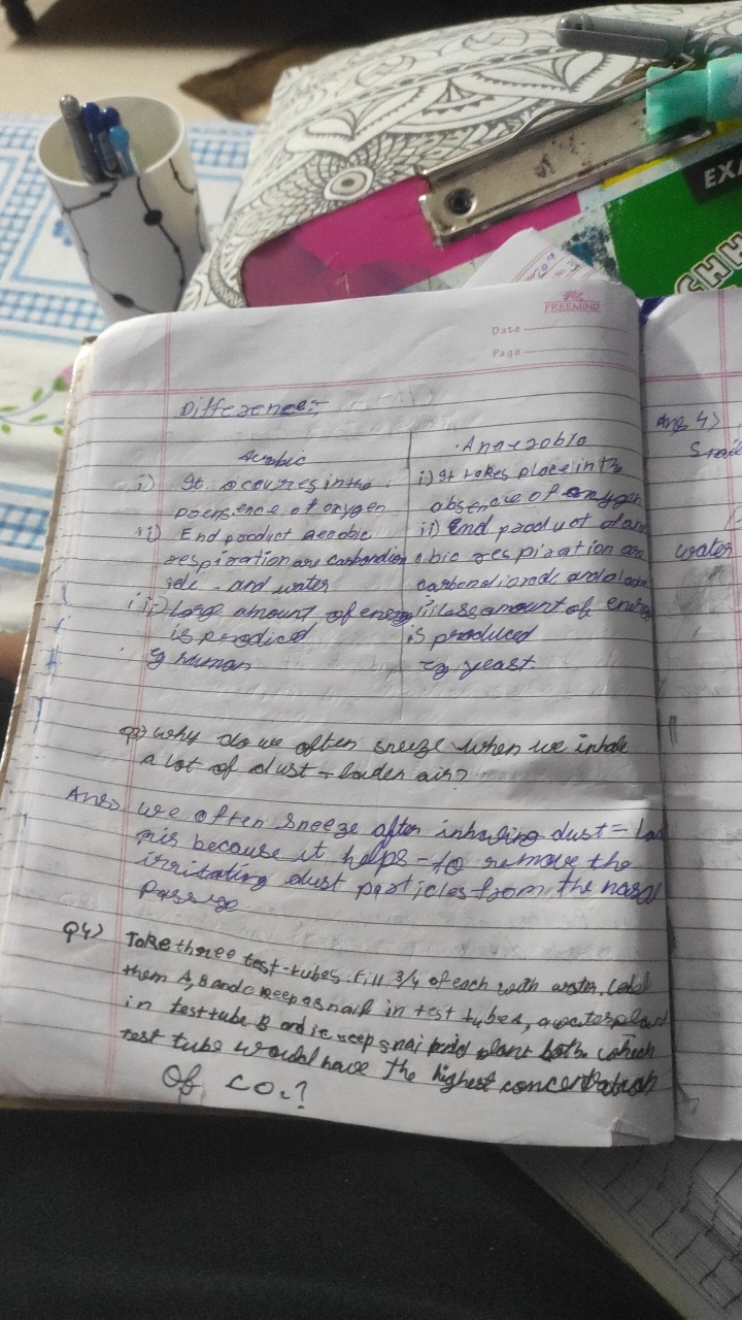 EXA
CHH
FREEMIND
Date
Page
Difference:-
Aerobic
Anaerobic
i) It occures in the
presence of oxygen
ii) End product aerobic
respiration are carbondiox
ide and water
iii) Large amount of energy
is prodiced
eg human
i) It takes place in the
absence of oxygen
ii) End product of ana
obic respiration are
carbondioxide and
iii) less amount of energy
is produced
eg yeast.
Q3) Why do we often sneeze when we inhale
a lot of dust-laden air?
Ans3) We often sneeze after inhaling dust-la
because it helps-to remove the
irritating dust particles from the nasal
Passage
Q4) Take three test-tubes. Fill 3/4 of each with water. Label
them A, B and C keep a snail in test tube A, a water plant
in test tube B and in keep snail and plant both which
test tube would have the highest concentration
Of CO2?
Ans 4)
water